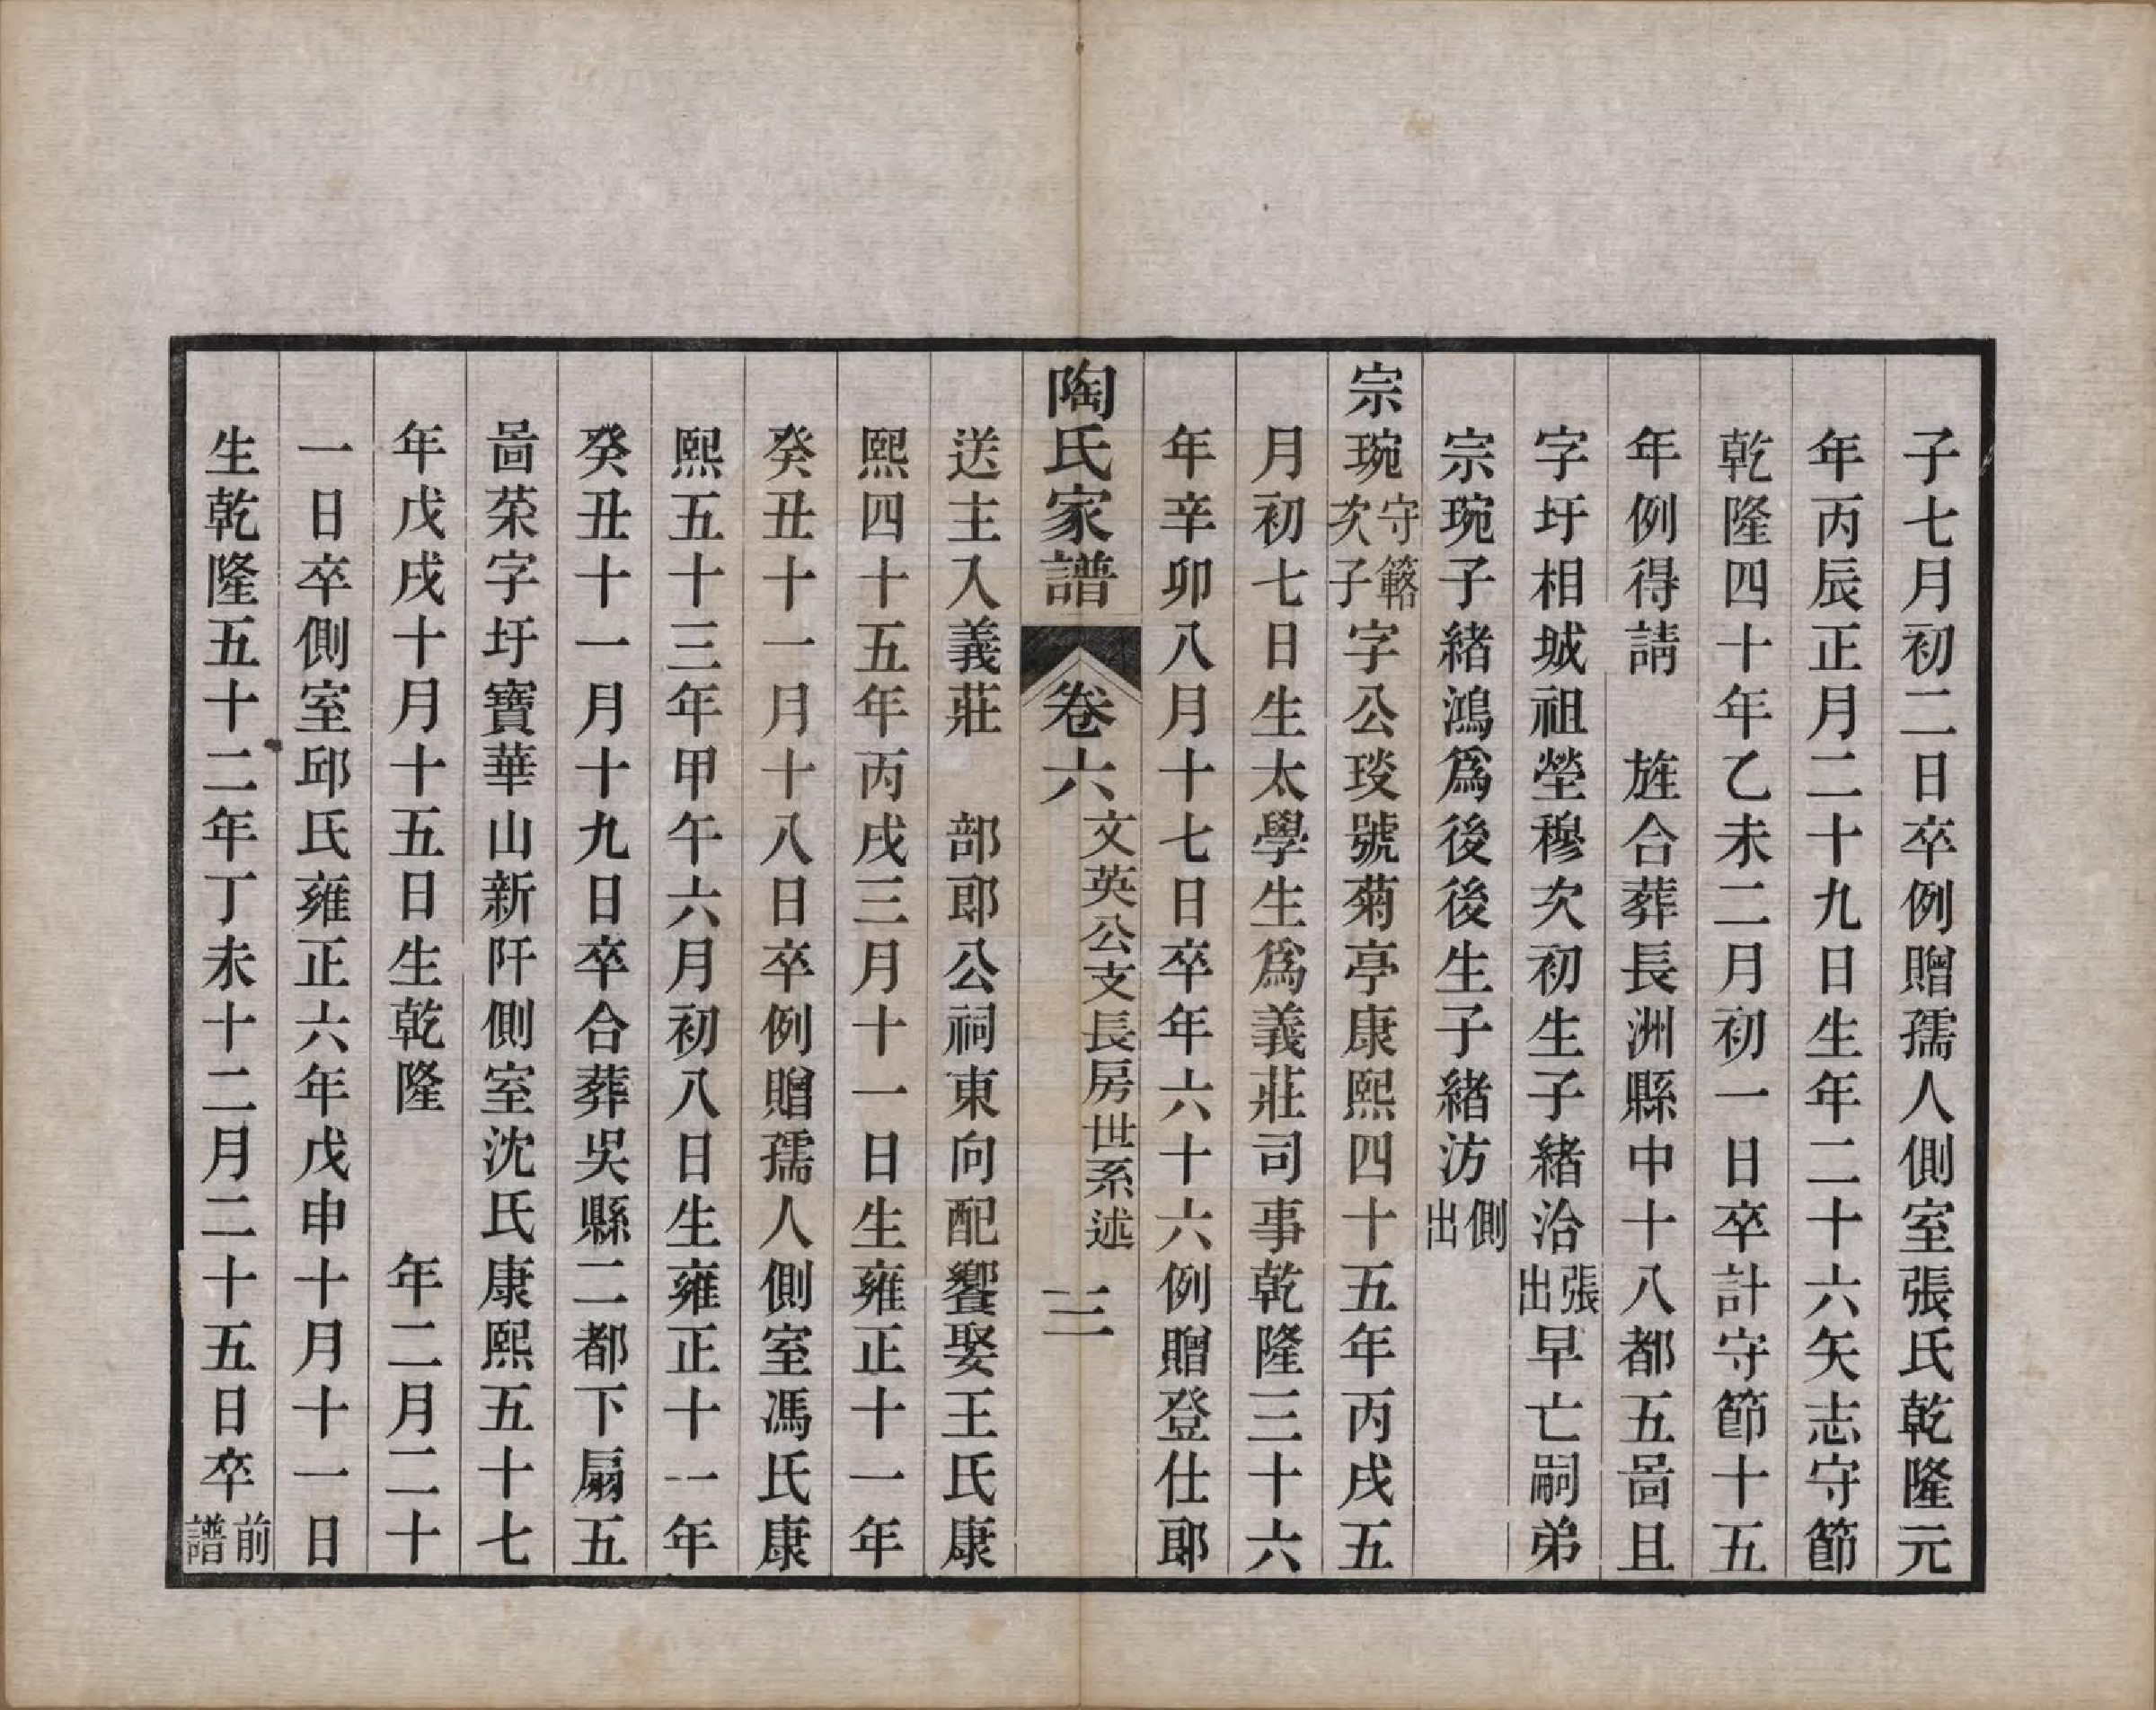 子七月初二日卒例贈孺人側室張氏乾隆元
年丙辰正月二十九日生年二十六矢志守節
乾隆四十年乙未二月初一日卒計守節十五
年例得請　旌合葬長洲縣中十八都五啚且
字圩相城祖塋穆次初生子緒治張出早亡嗣弟
宗琬子緒鴻爲後後生子緒汸側出
宗琬守簵次子字公琰號菊亭康熙四十五年丙戌五
月初七日生太學生爲義莊司事乾隆三十六
年辛卯八月十七日卒年六十六例贈登仕郎
陶氏家譜　卷六　文英公支長房世系述　三
送主入義莊　部郎公祠東向配饗娶王氏康
熙四十五年丙戌三月十一日生雍正十一年
癸丑十一月十八日卒例贈孺人側室馮氏康
熙五十三年甲午六月初八日生雍正十一年
癸丑十一月十九日卒合葬吳縣二都下扇五
啚荣字圩寶華山新阡側室沈氏康熙五十七
年戊戌十月十五日生乾隆　　年二月二十
一日卒側室邱氏雍正六年戊申十月十一日
生乾隆五十二年丁未十二月二十五日卒前譜